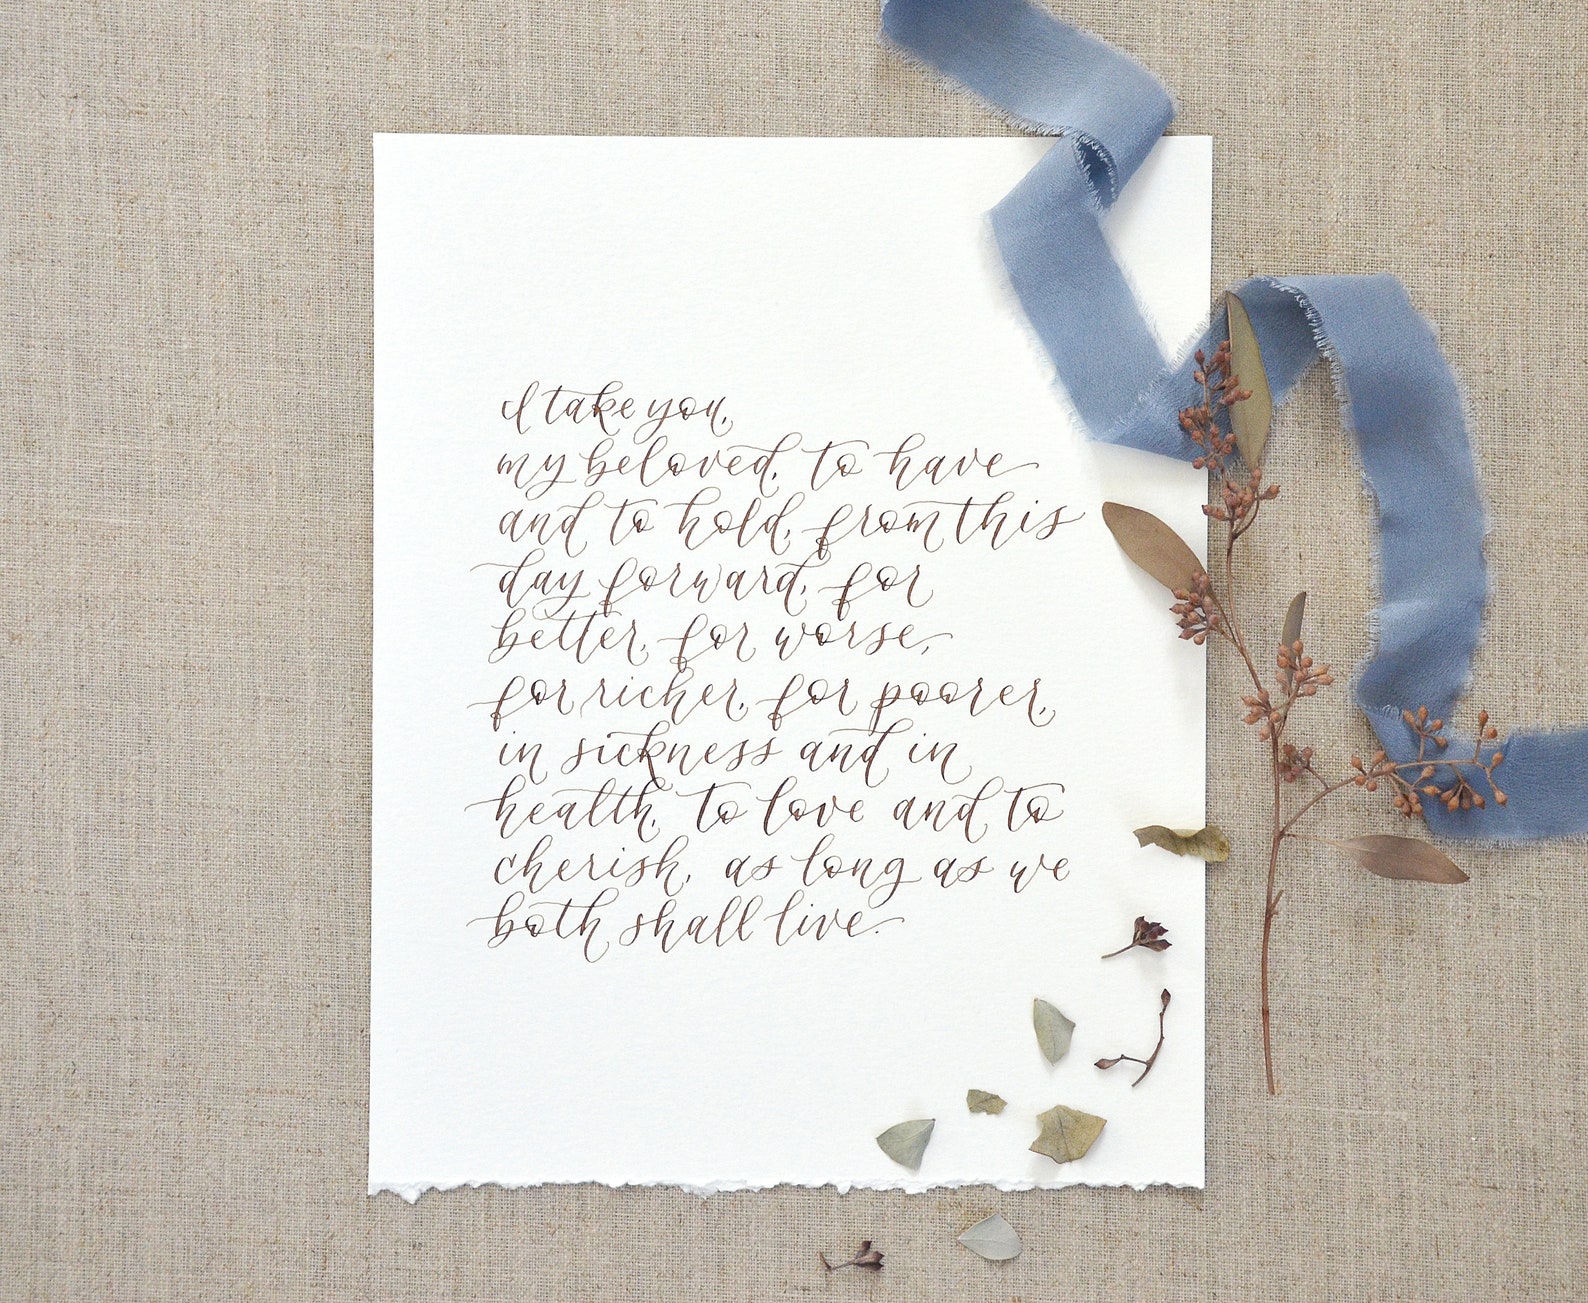 I take you,
my beloved, to have
and to hold, from this
day forward, for
better, for worse,
for richer, for poorer,
in sickness and in
health, to love and to
cherish, as long as we
both shall live.